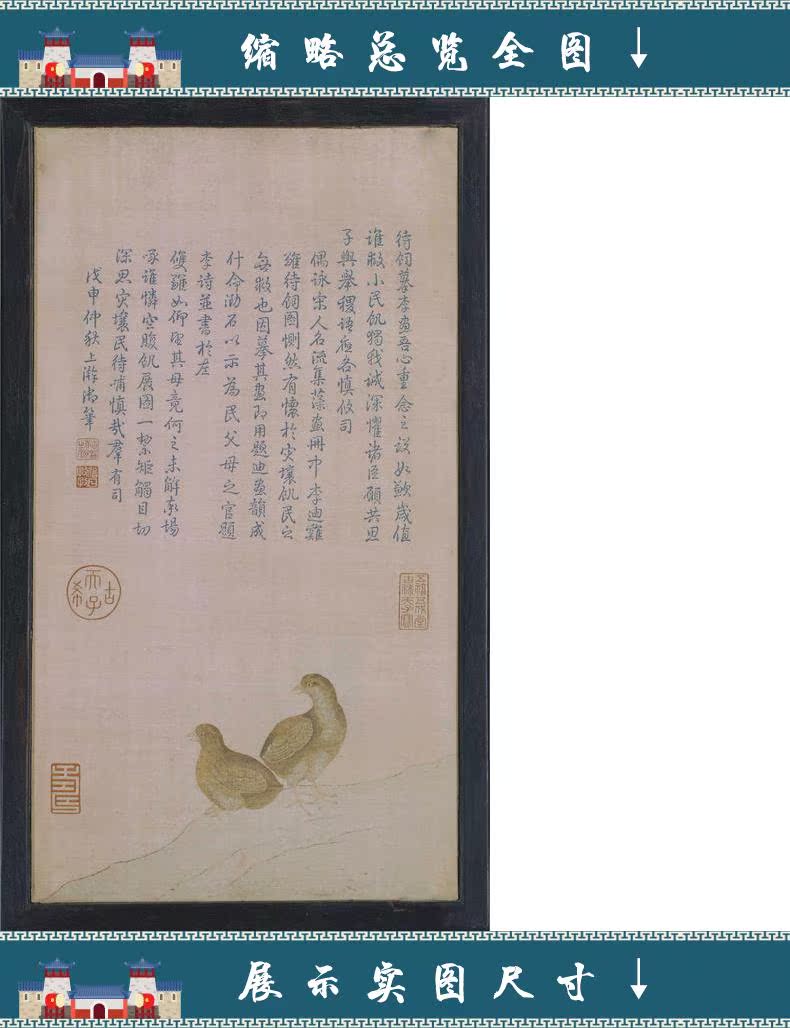 缩略总览全图↓
待飼摹李畫吾心重念之設如歉歲值
誰救小民飢獨我誠深懼諸臣願共思
子輿舉稷語 各慎攸司
偶詠宋人名流集藻畫冊中李迪雞
雛待飼圖惻然有懷於災壤飢民之
無救也因摹其畫即用題迪畫韻成
什命泐石以示為民父母之官題
李詩並書於左
雙雛如仰望其母竟何之未解索場
啄誰憐空腹飢展圖一絜矩觸目切
深思災壤民待哺慎哉羣有司
戊申仲秋上澣御筆
古希天子
展示实图尺寸↓